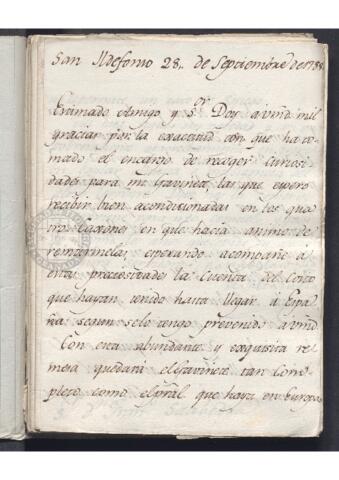 San Ildefonso 28. de Septiembre de 1788.
Estimado Amigo y S.or Doy a vmd. mil
gracias por la exactitud con que ha to-
mado el encargo de recoger curiosi-
dades para mi Gavinete, las que espero
recibir bien acondicionadas en los qua-
tro Caxones en que hacia animo de
remitirmelas, esperando acompañe á
estas preciosidades la Cuenta del Costo
que hayan tenido hasta llegar á Espa-
ña segun selo tengo prevenido a vmd.
Con esta abundante y exquisita re-
mesa quedará el Gavinete tan Com-
pleto como el pral. que haya en Europa